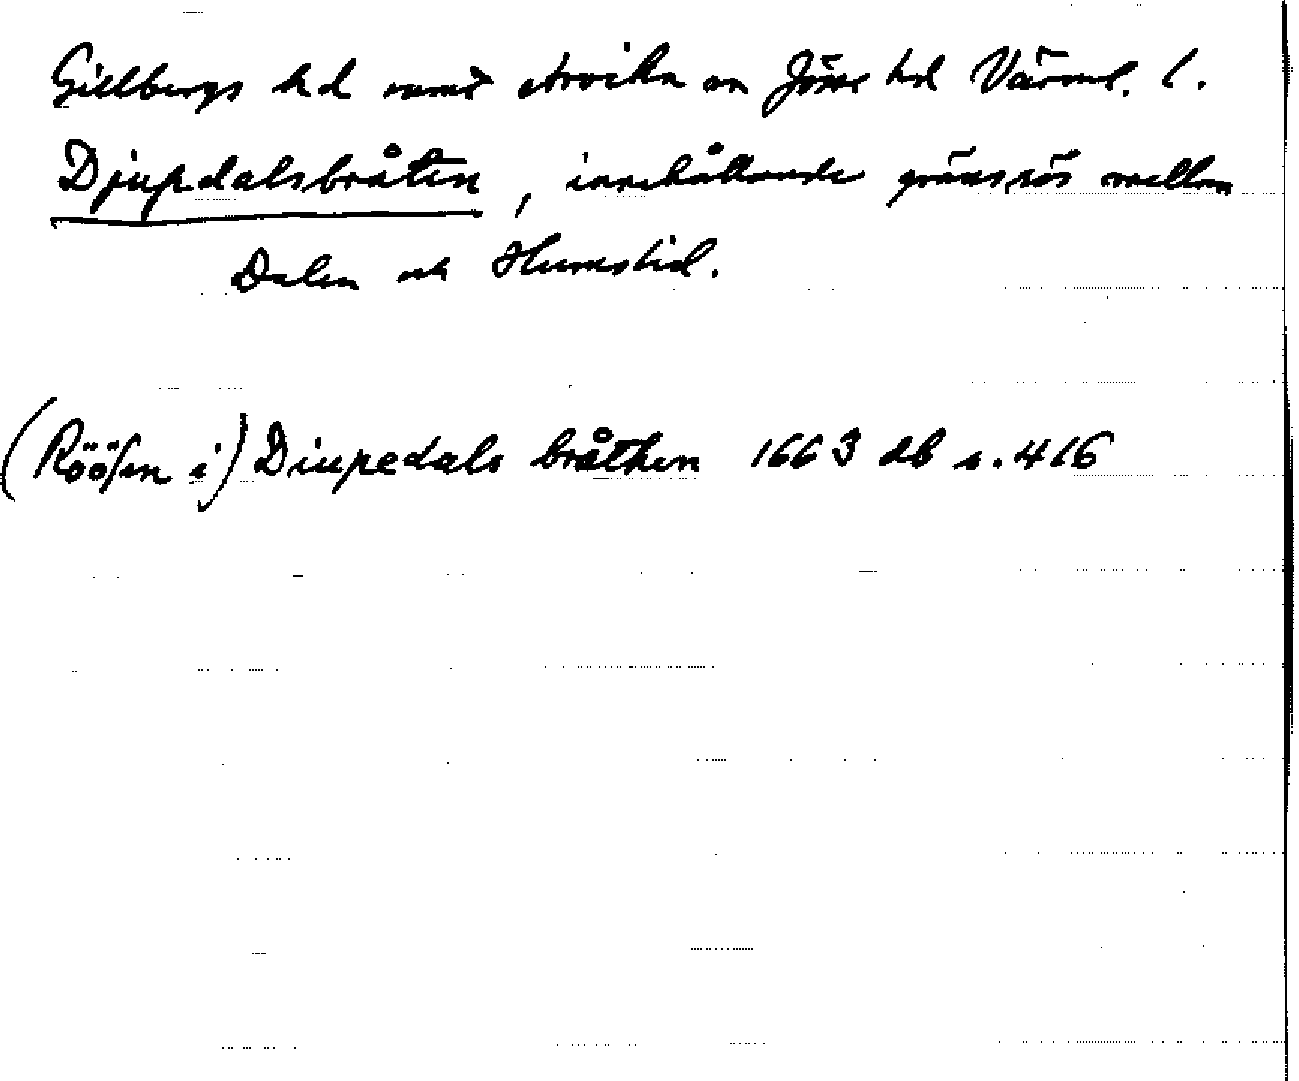 Gillbergs hd samt Arvika sn Jösse hd Värml. l.
Djupdalsbråten, innehållande gränsrös mellan
Dalen och Humstid.
(Röösen i) Diupedals bråthen 1663 db s. 416